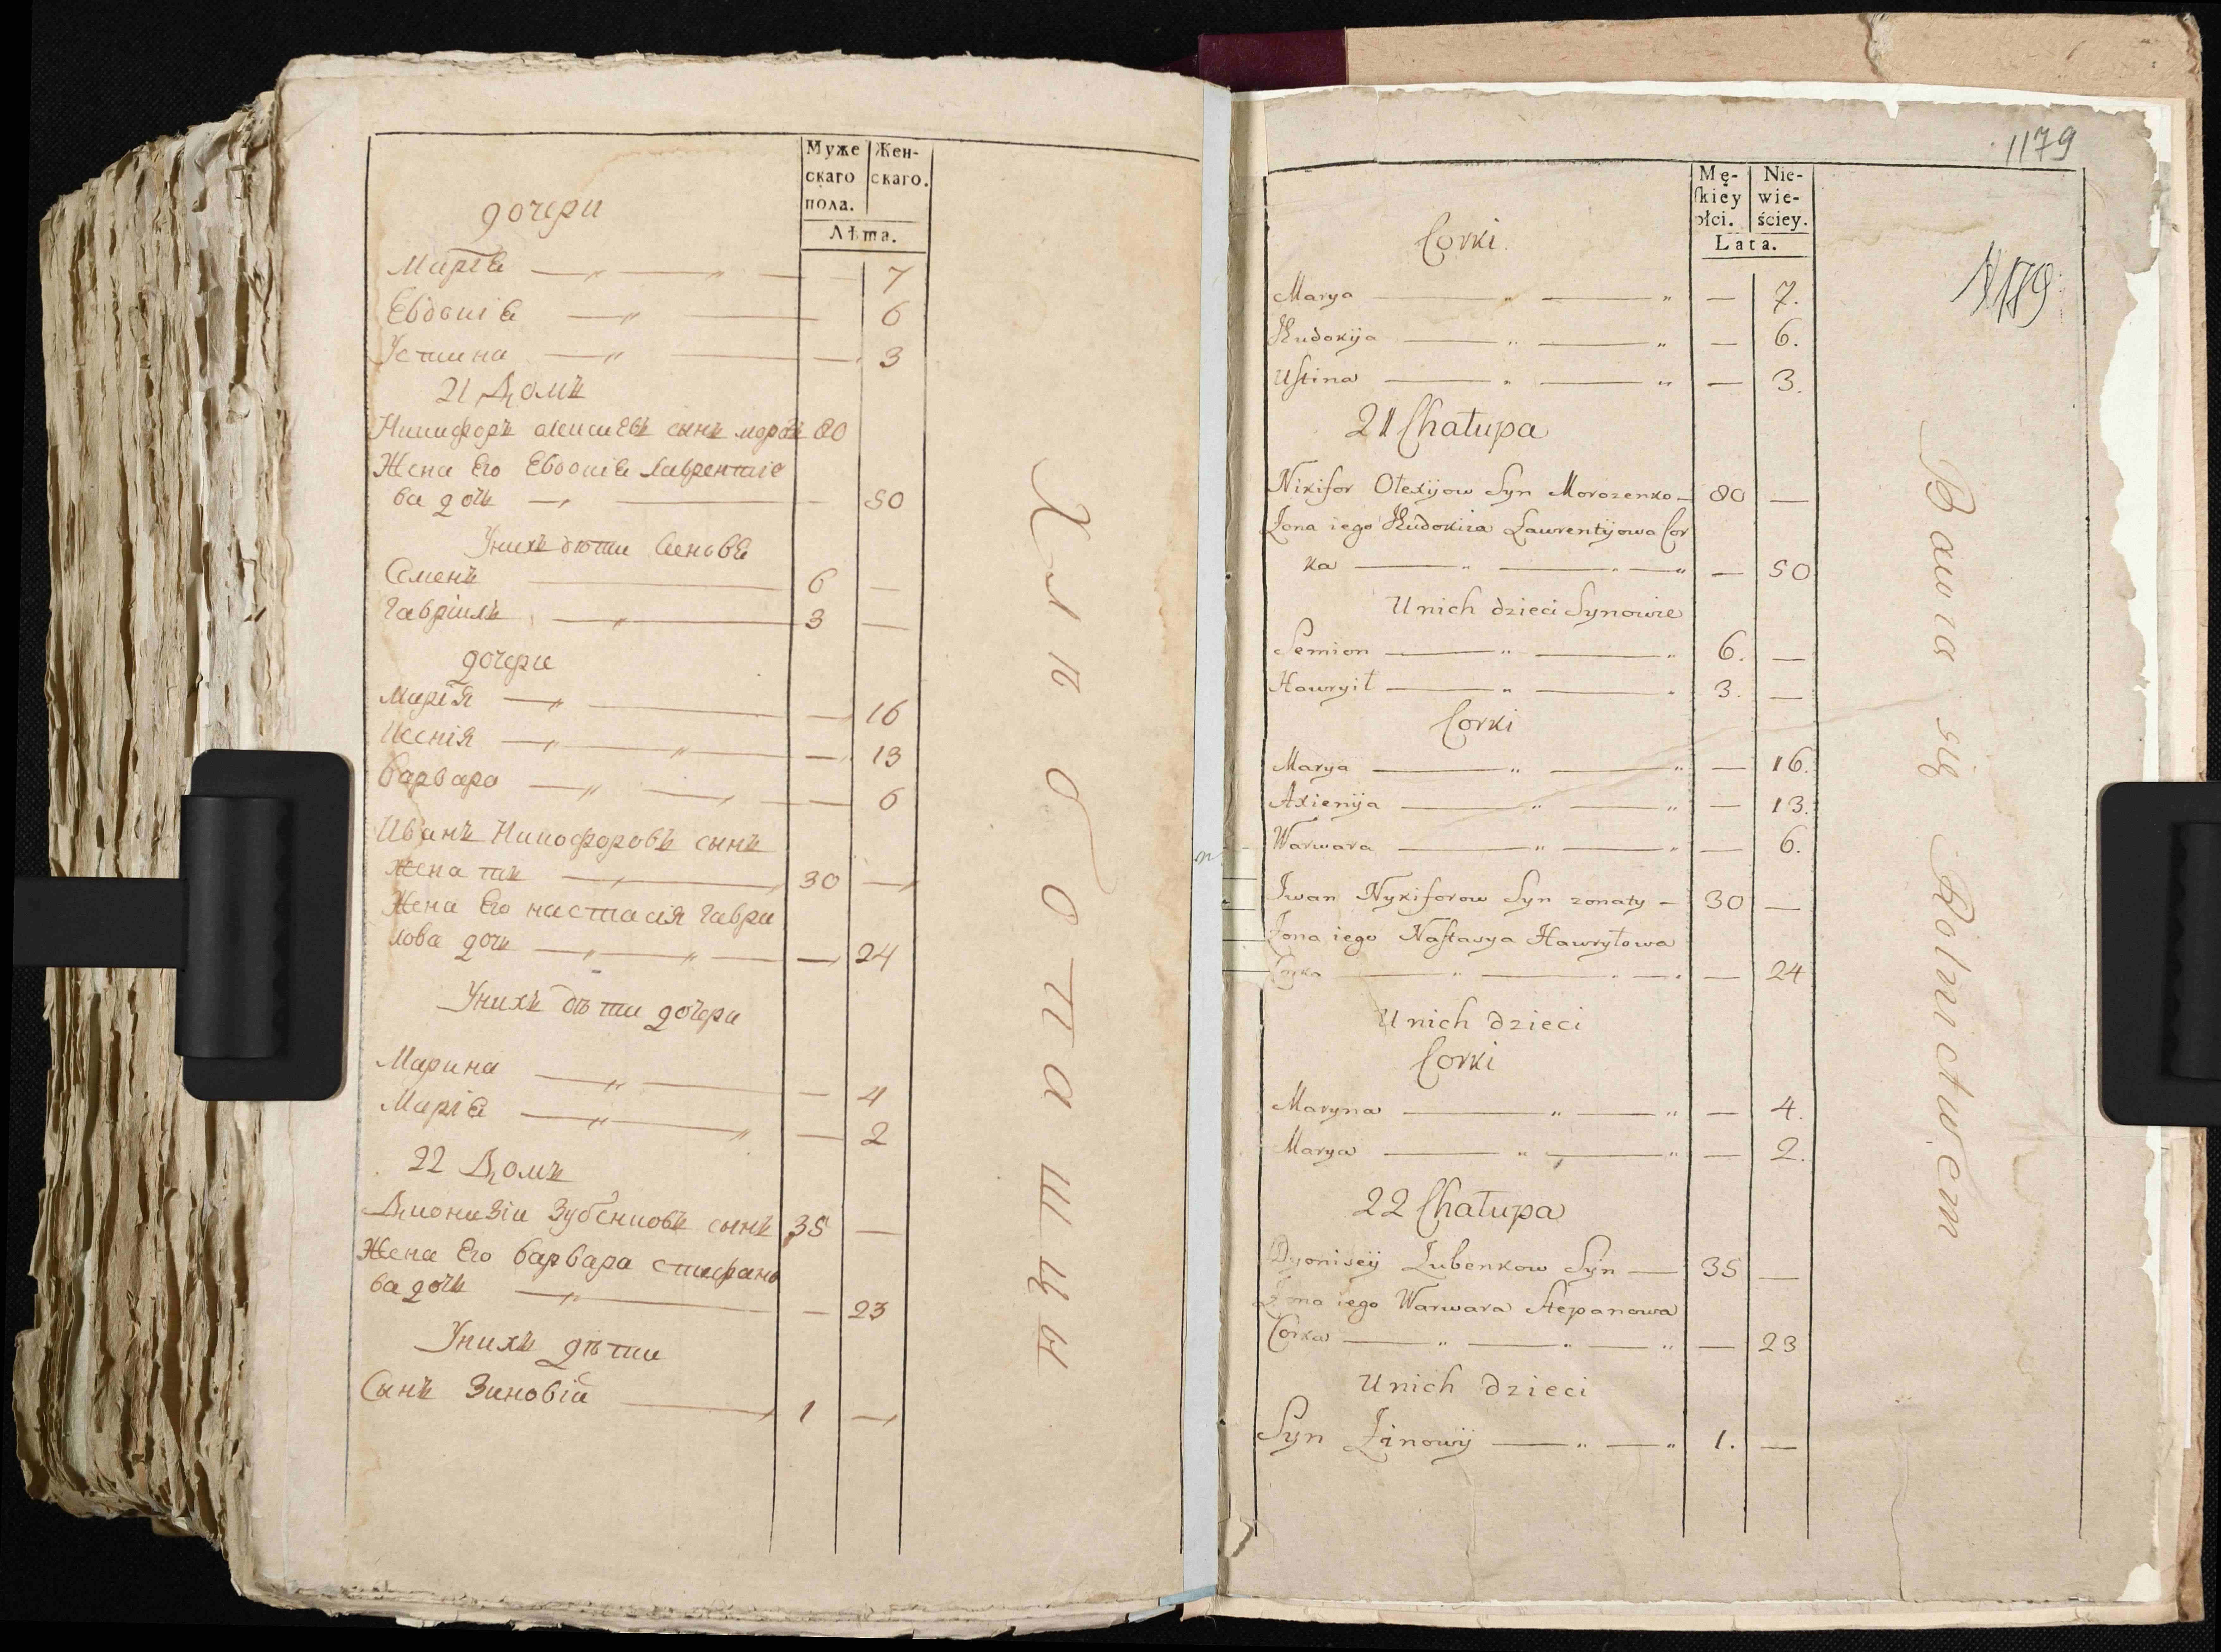 Муже
скаго
пола.
Жен-
скаго.
Лѣта.
дочери
Марія — 7
Евдокія — 6
Устина — 3
21 Домъ
Никифоръ сынъ 80
Жена Его Евдокія Лаврентіе
ва дочь — 50
Унихъ дѣти
Семенъ 6 —
Гавріилъ 3 —
дочери
Марія — 16
Ксенія — 13
Варвара — 6
Иванъ Никифоровъ сынъ
Жена тъ 30 —
Жена Его настасія Гаври
лова дочь — 24
Унихъ дѣти дочери
Марина — 4
Марія — 2
22 Домъ
Дионизіи Зубенковъ сынъ 35 —
Жена Его варвара стефано
ва дочь — 23
Унихъ дѣти
Сынъ Зиновіи 1 —
Хлѣбопашцы
1179
Mę-
skiey
płci.
Nie-
wie-
ściey.
Lata.
Corki.
Marya — 7.
Eudokija — 6.
Ustina — 3.
1179
21 Chałupa
Nikifor Ołexijow Syn Morozenko 80 —
Zona iego Eudokija Laurentyowa Cor
ka — 50
Unich dzieci Synowie
Semion 6. —
Hawryił 3. —
Corki
Marya — 16.
Axienija — 13.
Warwara — 6.
Iwan Nykiforow Syn zonaty 30 —
Zona iego Nastasya Hawryłowa
Corka — 24
Unich dzieci
Corki
Maryna — 4.
Marya — 2.
22 Chałupa
Dyonisey Zubenkow Syn 35 —
Zona iego Warwara Stepanowa
Corka — 23
Unich dzieci
Syn Zinowij 1. —
Bawia się Rolnictwem